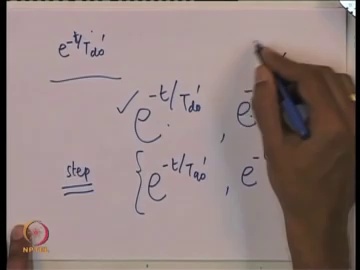 e^{-t/T'_{do}}
✓ e^{-t/T'_{do}} , e^{-
step { e^{-t/T'_{do}} , e^{-
NPTEL